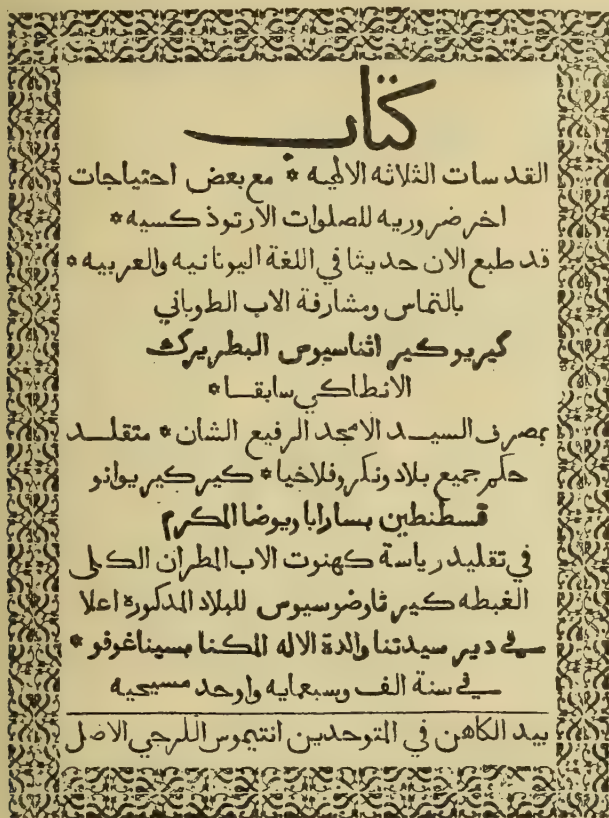 كتاب
القدسات الثلاثه الالهيه * مع بعض احتياجات
اخر ضروريه للصلوات الارتوذكسيه *
قد طبع الان حديثا في اللغة اليونانيه والعربيه *
بالتماس ومشارفة الاب الطوباني
كيريو كير اثناسيوس البطريرك
الانطاكي سابقا *
بمصرف السيد الامجد الرفيع الشان * متقلد
حكم جميع بلاد ونكروفلاخيا * كير كير يوانو
قسطنطين بساراباويوضا المكرم
في تقليد رياسة كهنوت الاب المطران الكلى
الغبطه كير ثاوضوسيوس للبلاد المذكورة اعلا
في دير سيدتنا والدة الاله المكنا بسيناغوفو *
في سنة الف وسبعمايه واوحد مسيحيه
بيد الكاهن في المتوحدين انتيموس اللرجي الاصل